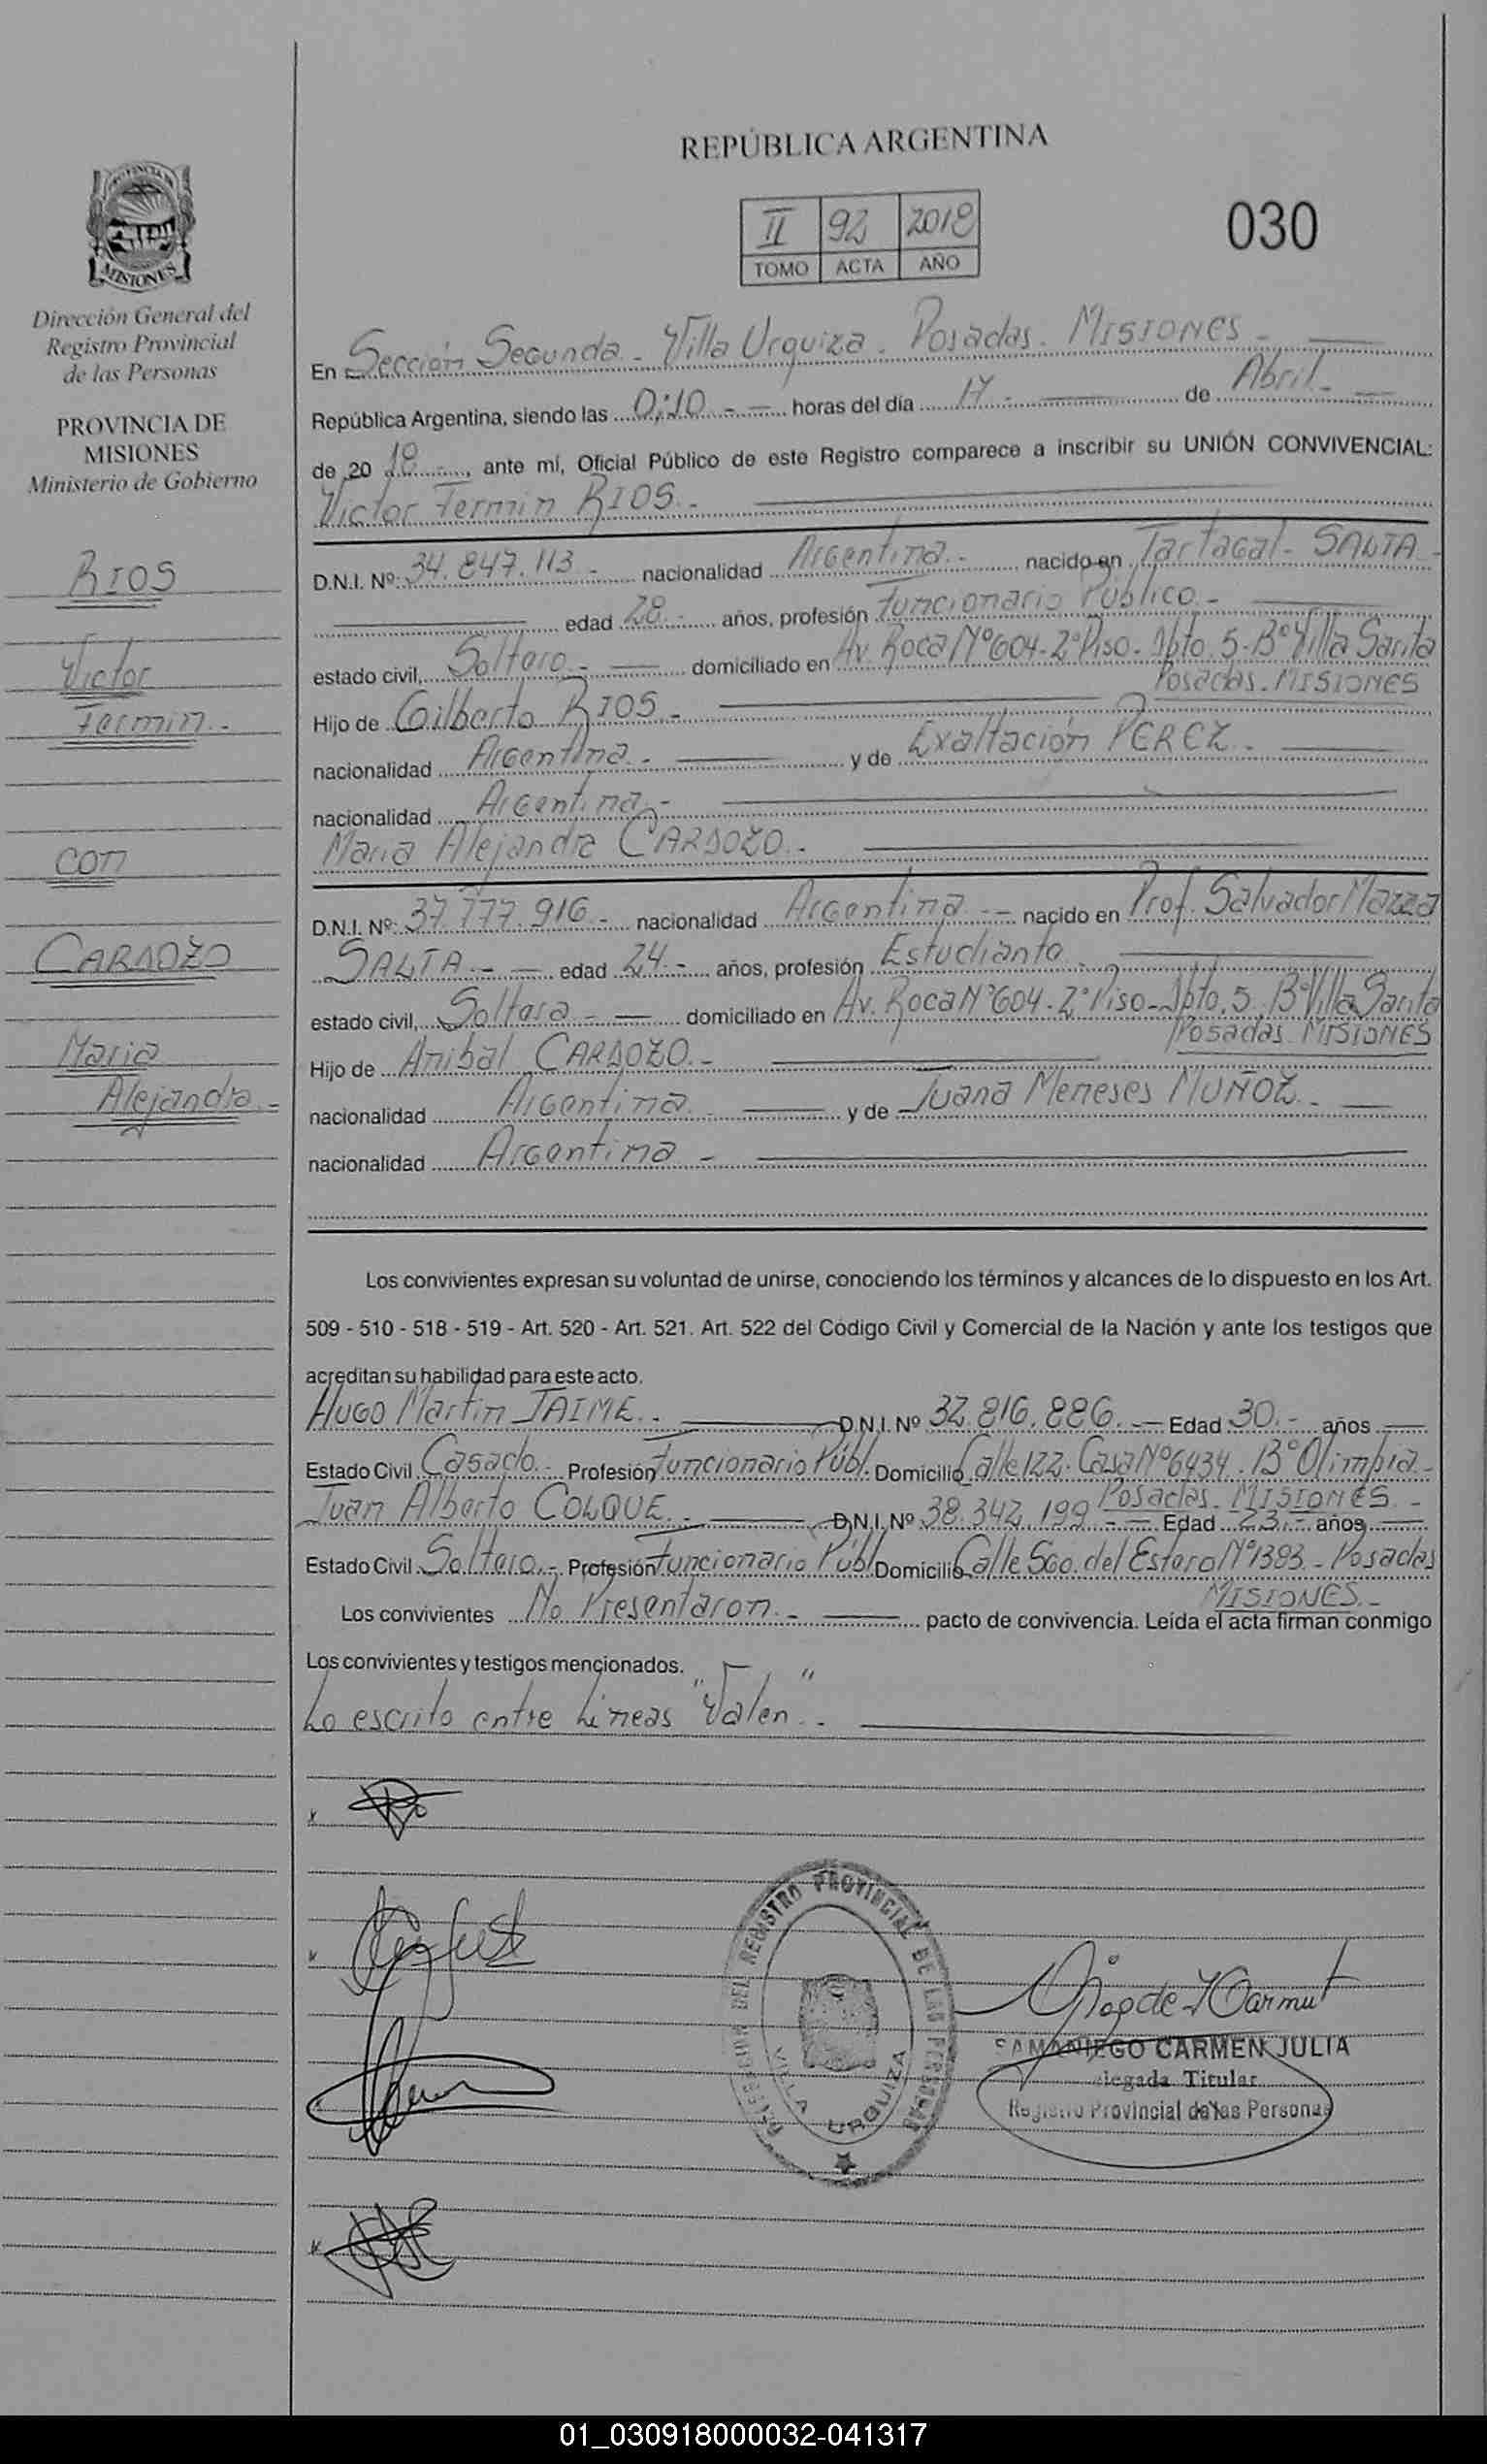 REPÚBLICA ARGENTINA
II 92 2018
TOMO ACTA AÑO
030
PROVINCIA DE MISIONES
Dirección General del
Registro Provincial
de las Personas
PROVINCIA DE
MISIONES
Ministerio de Gobierno
RIOS
Victor
Fermin.-
con
CARDOZO
Maria
Alejandra.-
En Sección Segunda - Villa Urquiza - Posadas - MISIONES -
República Argentina, siendo las 0:10 - horas del día 17 - de Abril -
de 20 18 -, ante mí, Oficial Público de este Registro comparece a inscribir su UNIÓN CONVIVENCIAL:
Victor Fermin RIOS.-
D.N.I. Nº: 34.847.113 - nacionalidad Argentina - nacido en Tartagal - SALTA -
edad 28 - años, profesión Funcionario Público -
estado civil, Soltero - domiciliado en Av. Roca Nº 604 - 2º Piso - Dpto. 5 - Bº Villa Sarita
Posadas - MISIONES
Hijo de Gilberto RIOS -
nacionalidad Argentina - y de Exaltación PEREZ -
nacionalidad Argentina -
Maria Alejandra CARDOZO.-
D.N.I. Nº: 37.777.916 - nacionalidad Argentina - nacido en Prof. Salvador Mazza
SALTA - edad 24 - años, profesión Estudiante
estado civil, Soltera - domiciliado en Av. Roca Nº 604 - 2º Piso - Dpto. 5 - Bº Villa Sarita
Posadas MISIONES
Hijo de Anibal CARDOZO.-
nacionalidad Argentina - y de Juana Meneses MUÑOZ -
nacionalidad Argentina -
Los convivientes expresan su voluntad de unirse, conociendo los términos y alcances de lo dispuesto en los Art.
509 - 510 - 518 - 519 - Art. 520 - Art. 521. Art. 522 del Código Civil y Comercial de la Nación y ante los testigos que
acreditan su habilidad para este acto.
Hugo Martin JAIME.- D.N.I. Nº 32.816.886.- Edad 30.- años
Estado Civil Casado - Profesión Funcionario Públ. Domicilio Calle 122 - Casa Nº 6434 - Bº Olimpia -
Posadas - MISIONES -
Juan Alberto COLQUE.- D.N.I. Nº 38.342.199 - Edad 23.- años
Estado Civil Soltero.- Profesión Funcionario Públ Domicilio Calle Sgo. del Estero Nº 1383 - Posadas
MISIONES.-
Los convivientes No Presentaron - pacto de convivencia. Leída el acta firman conmigo
Los convivientes y testigos mencionados.
Lo escrito entre Lineas "Valen".-
DEL REGISTRO PROVINCIAL DE LAS PERSONAS
VILLA URQUIZA
SAMANIEGO CARMEN JULIA
Delegada Titular
Registro Provincial de las Personas
01_030918000032-041317